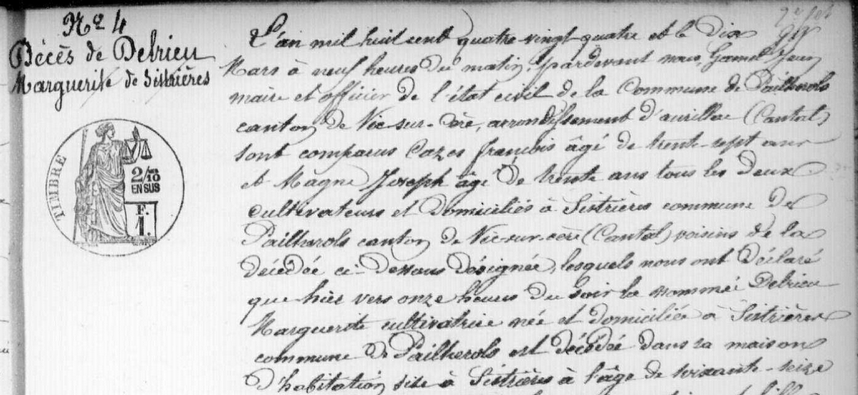 N° 4
Décès de Delrieu
Marguerite de Sistrières
TIMBRE
2/10
EN SUS
F.
1.
L'an mil huit cent quatre-vingt-quatre et le Dix
Mars à neuf heures du matin, pardevant nous, Gamel Jean
maire et officier de l'état civil de la Commune de Pailherols
canton de Vic-sur-Cère, arrondissement d'aurillac (Cantal)
sont comparus Cazes françois âgé de trente-sept ans
et Magne Joseph âgé de trente ans tous les deux
cultivateurs et domiciliés à Sistrières commune de
Pailherols canton de Vic-sur-cère (Cantal) voisins de la
décédée ci-dessous désignée, lesquels nous ont déclaré
que hier vers onze heures du soir la nommé Delrieu
Marguerite cultivatrice née et domiciliée à Sistrières
commune de Pailherols est décédée dans sa maison
d'habitation sise à Sistrières à l'âge de soixante-seize